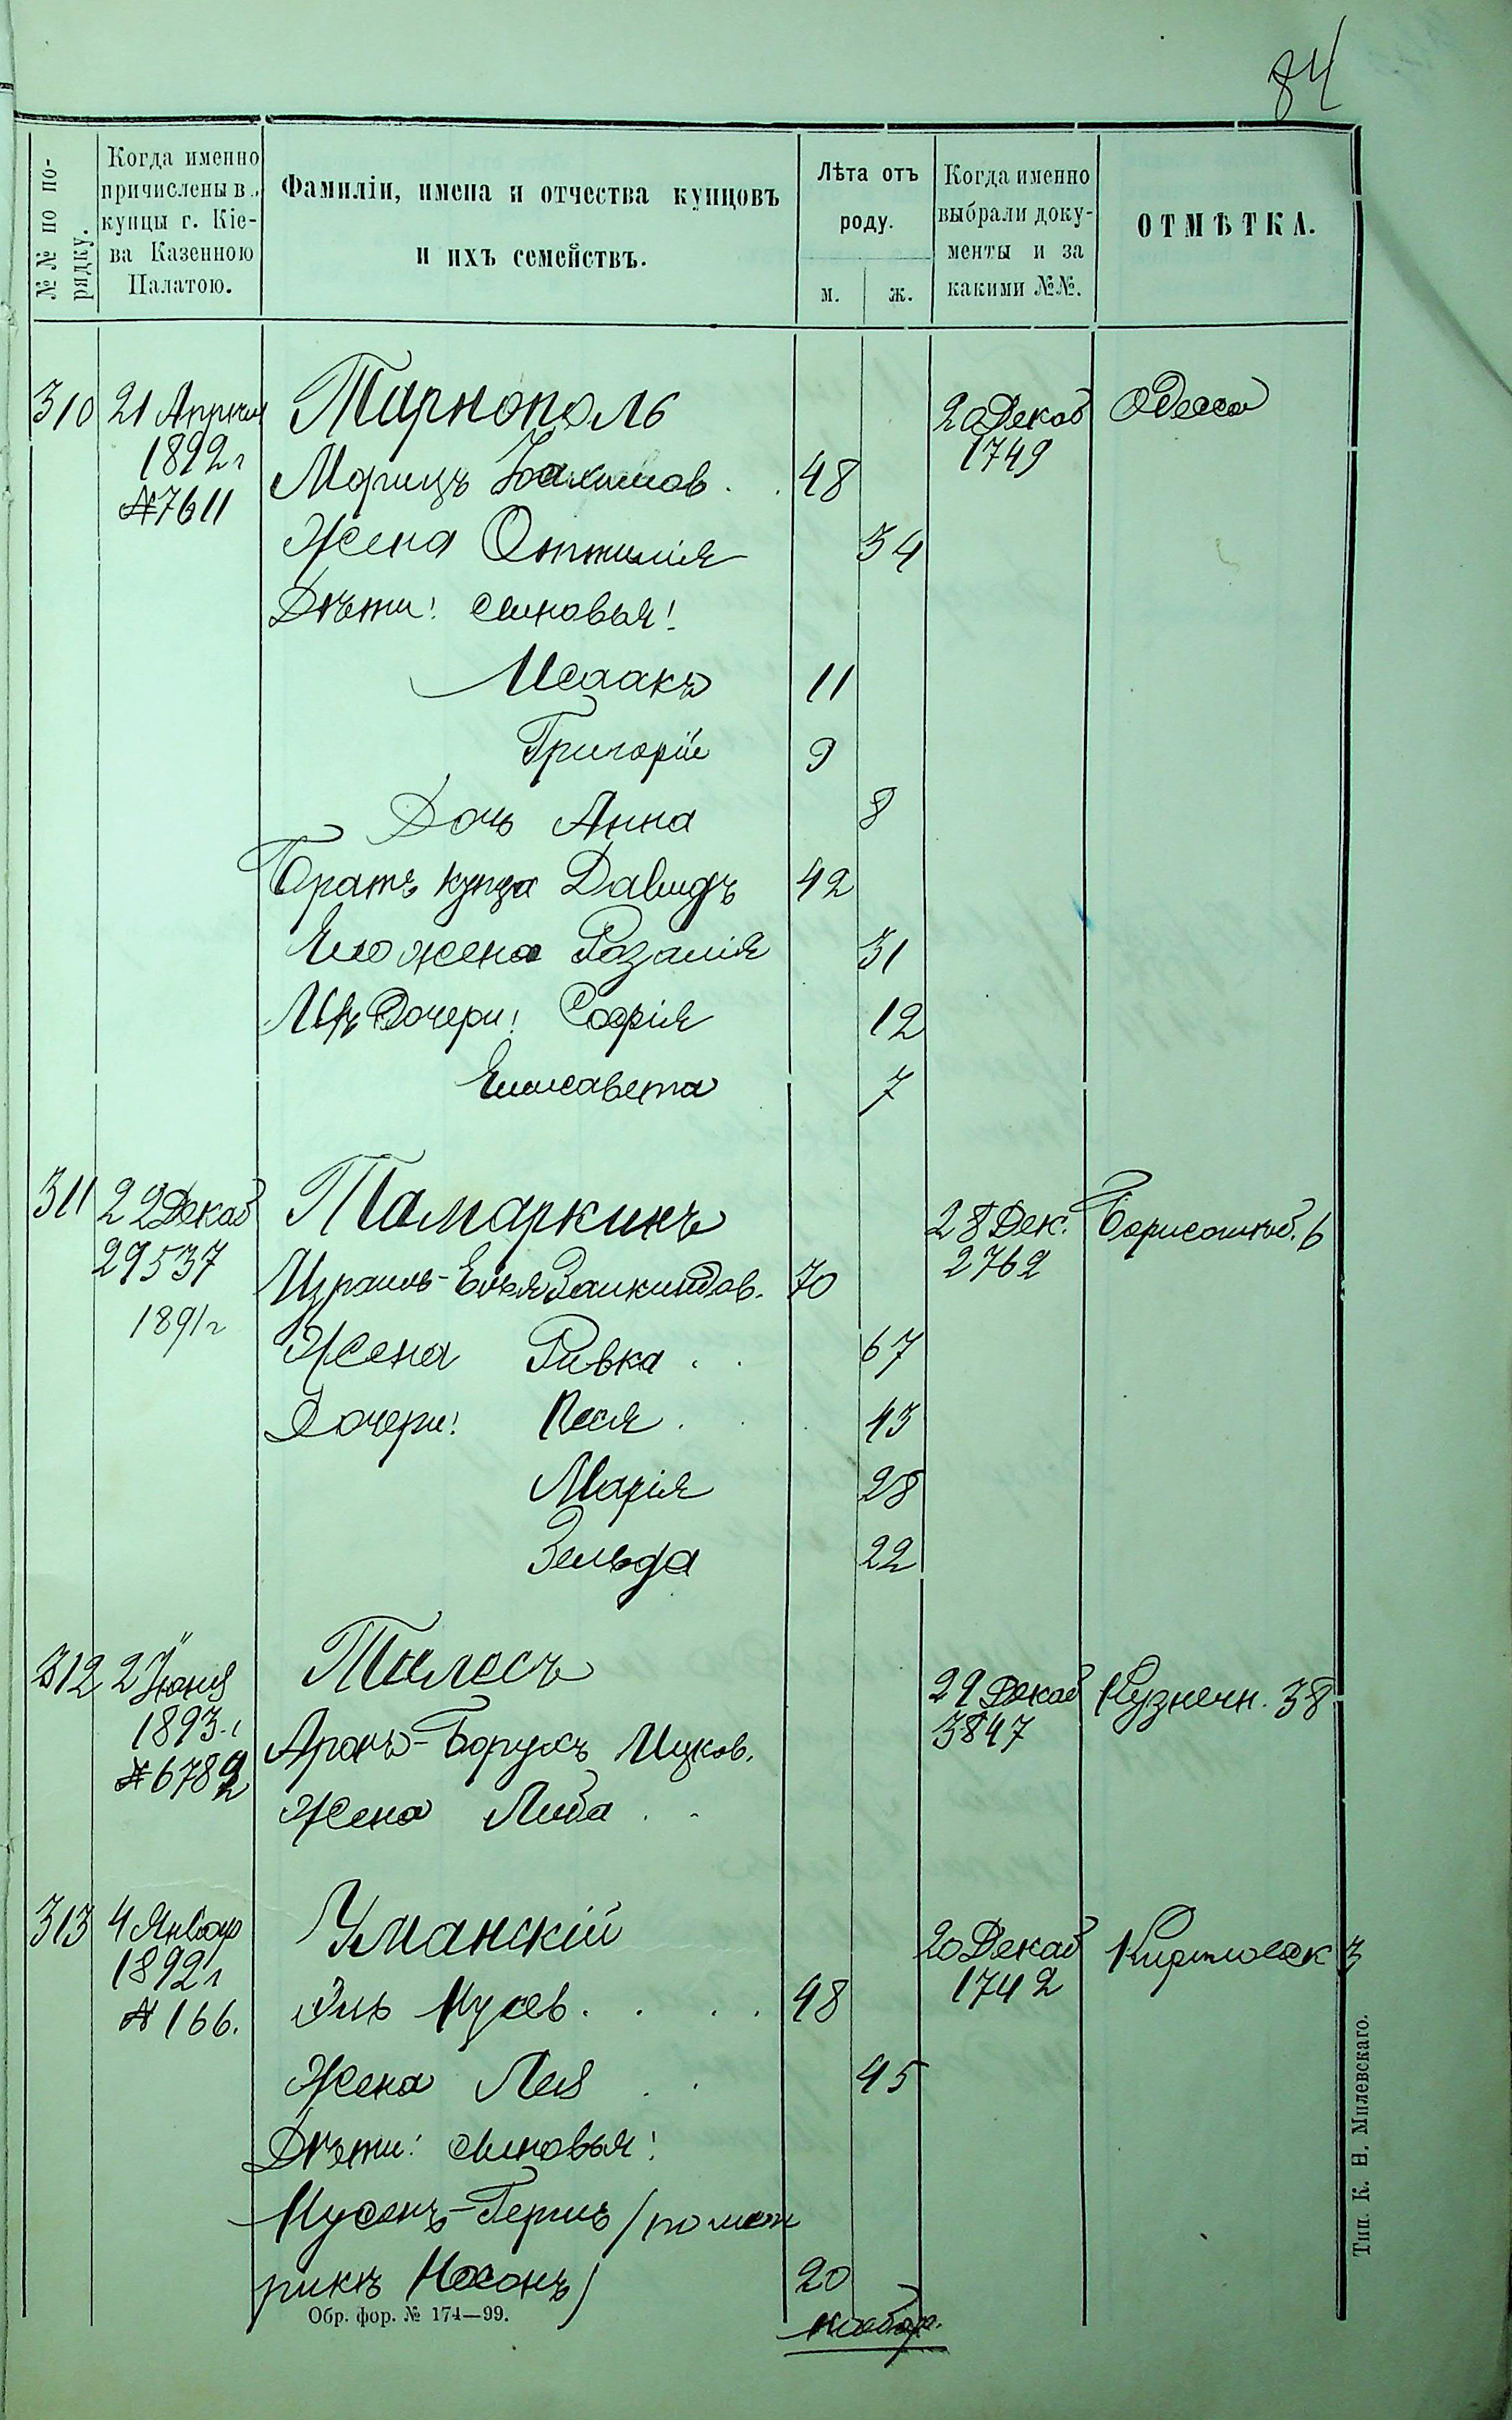 84
№№ по по-
рядку.
Когда именно
причислены в
купцы г. Кіе-
ва Казенною
Палатою.
Фамиліи, имена и отчества купцовъ
и ихъ семействъ.
Лѣта отъ
роду.
м. ж.
Когда именно
выбрали доку-
менты и за
какими №№.
ОТМѢТКА.
310 21 Апрѣля Тарнополь 20 Декаб Одесса
1892 г 1749
№7611 Морицъ 48
Жена Оттилія 34
Дѣти: сыновья:
Исаакъ 11
Григорій 9
Дочь Анна 8
Братъ купца Давидъ 42
Его жена Розалія 31
Ихъ Дочери: Софія 12
Елисавета 7
311 22 Декаб Тамаркинъ 28 Дек. Борисоглѣб. 6
29537 2762
Израиль-Елья Залкиндов. 70
1891 г
Жена Ривка 67
Дочери: Песя 43
Марія 28
Зельда 22
312 2 Іюня Талесъ 29 Декаб Кузнечн. 38
1893 г 3847
№6782 Аронъ-Борухъ Ицков.
Жена Либа
313 4 Январ Уманскій 20 Декаб 3
1892 г 1742
№ 166. Эль Нусев. 48
Жена Лея 45
Дѣти: сыновья:
Нусенъ-Гершъ /по мет
рикѣ Носонъ/ 20
Обр. фор. № 174—99.
Тип. К. Н. Милевскаго.